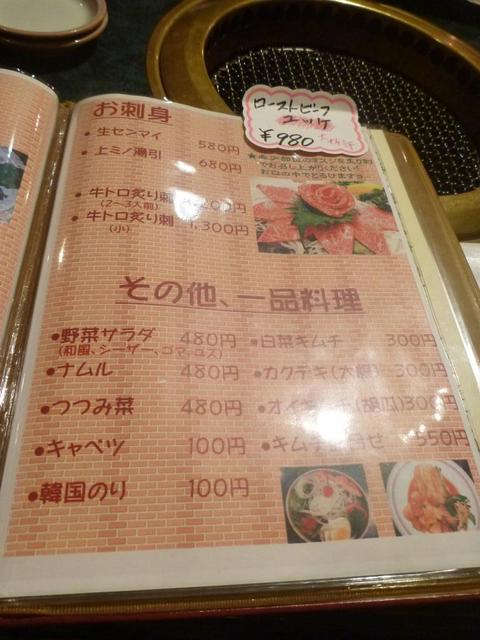 お刺身
・生センマイ 580円
・上ミノ湯引 680円
・牛トロ炙り刺
(2〜3人前)
・牛トロ炙り刺 1,300円
(小)
ローストビーフ
ユッケ
¥980
お召し上がりください!
お口の中でとろけます
その他、一品料理
●野菜サラダ 480円
(和風、シーザー、ゴマ、ユズ)
●ナムル 480円
●つつみ菜 480円
●キャベツ 100円
●韓国のり 100円
●白菜キムチ 300円
●カクテキ(大根) 300円
●オイキムチ(胡瓜)300円
●キムチ盛合せ 550円